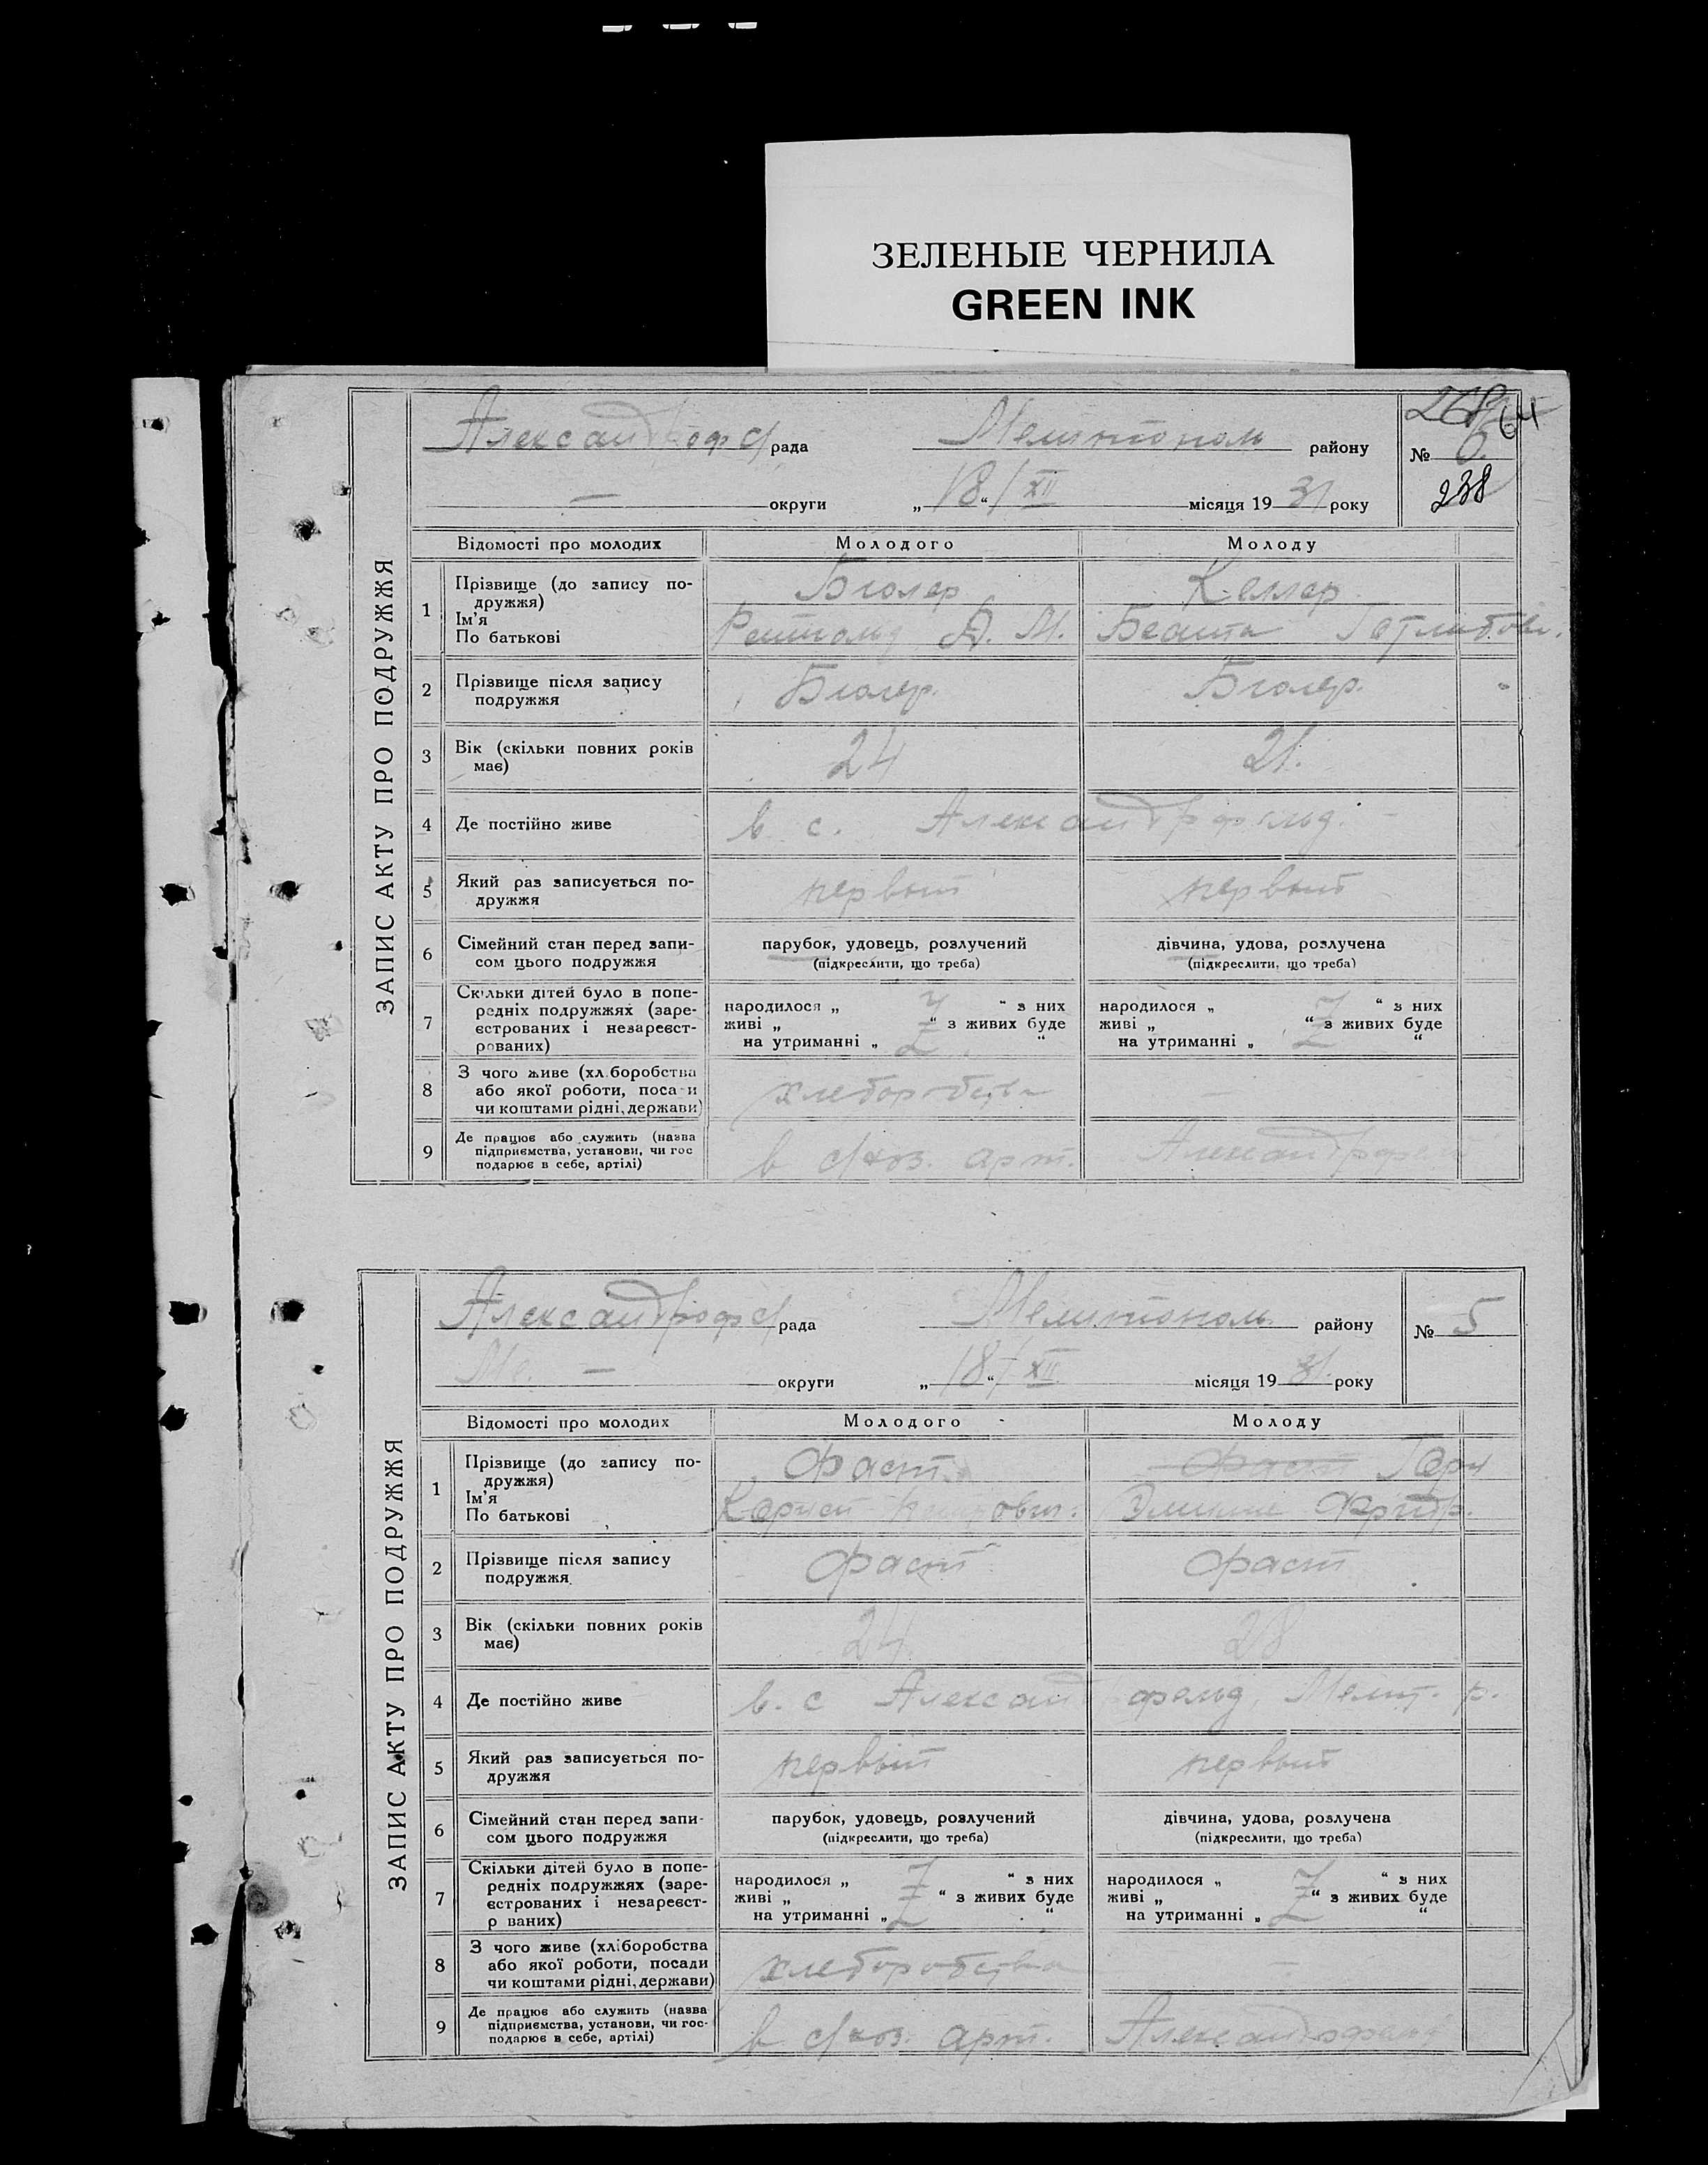 ЗЕЛЕНЫЕ ЧЕРНИЛА
GREEN INK
ЗАПИС АКТУ ПРО ПОДРУЖЖЯ
Александроф с/рада Мелитополь району № 6.
— округи „ 18 “ / XII місяця 19 31 року
238
Відомості про молодих Молодого Молоду
1 Прізвище (до запису по-дружжя) Бюлер Келлер
Ім'я
По батькові Рейнольд А. М. Беата Готлибовн.
2 Прізвище після запису подружжя Бюлер. Бюлер.
3 Вік (скільки повних років має) 24 21.
4 Де постійно живе в с. Александрфельд.
5 Який раз записується по-дружжя первый первый
6 Сімейний стан перед запи-сом цього подружжя парубок, удовець, розлучений (підкреслити, що треба) дівчина, удова, розлучена (підкреслити, що треба)
7 Скільки дітей було в попе-редніх подружжях (заре-єстрованих і незареєст-рованих) народилося „ Z “ з них живі „ “ з живих буде на утриманні „ Z “ народилося „ Z “ з них живі „ “ з живих буде на утриманні „ Z “
8 З чого живе (хл боробства або якої роботи, поса и чи коштами рідні, держави) хлеборобства —
9 Де працює або служить (назва підприємства, установи, чи гос подарює в себе, артілі) в с/хоз. арт. Александрфельд
ЗАПИС АКТУ ПРО ПОДРУЖЖЯ
Александроф с/рада Мелитополь району № 5
Ме. — округи „ 18 “ / XII місяця 19 31. року
Відомості про молодих Молодого Молоду
1 Прізвище (до запису по-дружжя) Фаст Фаст Горн
Ім'я
По батькові Корней Эмилие Фридр.
2 Прізвище після запису подружжя Фаст Фаст
3 Вік (скільки повних років має) 24 28
4 Де постійно живе в. с Александрфельд, Мелит. р.
5 Який раз записується по-дружжя первый первый
6 Сімейний стан перед запи-сом цього подружжя парубок, удовець, розлучений (підкреслити, що треба) дівчина, удова, розлучена (підкреслити, що треба)
7 Скільки дітей було в попе-редніх подружжях (заре-єстрованих і незареєст-р ваних) народилося „ Z “ з них живі „ Z “ з живих буде на утриманні „ Z “ народилося „ Z “ з них живі „ Z “ з живих буде на утриманні „ Z “
8 З чого живе (хліборобства або якої роботи, посади чи коштами рідні, держави) хлеборобства —
9 Де працює або служить (назва підприємства, установи, чи гос-подарює в себе, артілі) в с/хоз. арт. Александрфельд